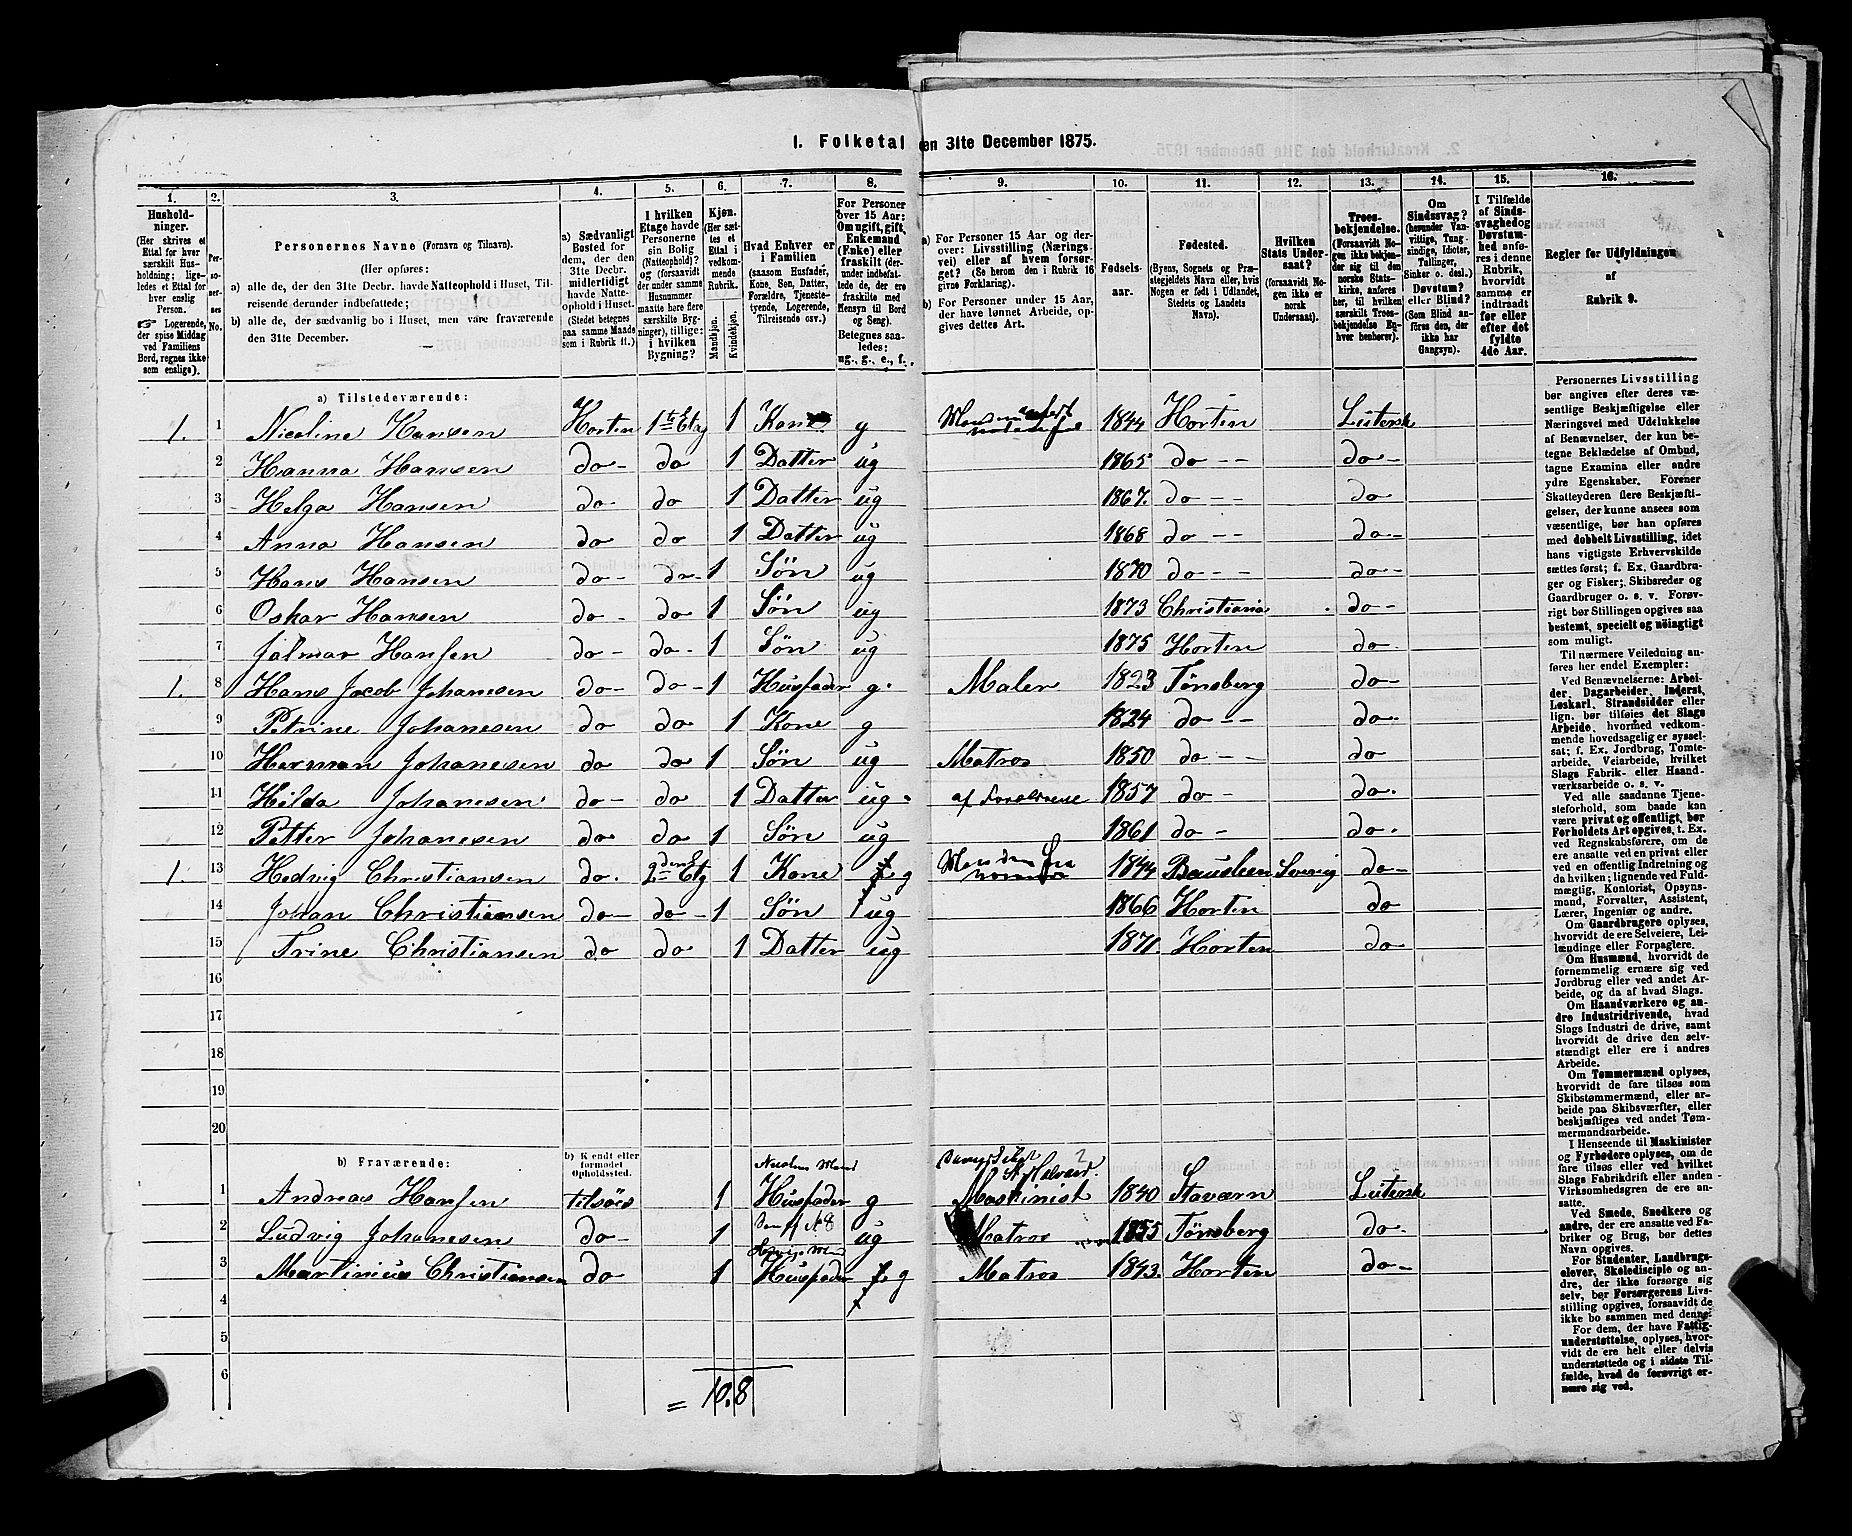 1. Folketal den 31te December 1875.
1. 2. 3. 4. 5. 6. 7. 8. 9. 10. 11. 12. 13. 14. 15. 16.
Hushold-
ninger.
(Her skrives et
Ettal for hver
særskilt Hus-
holdning; lige-
ledes et Ettal for
hver enslig
Person.
☞ Logerende,
der spise Middag
ved Familiens
Bord, regnes ikke
som enslige).
Per-
so-
ner-
nes
No.
Personernes Navne (Fornavn og Tilnavn).
(Her opføres:
a) alle de, der den 31te Decbr. havde Natteophold i Huset, Til-
reisende derunder indbefattede;
b) alle de, der sædvanlig bo i Huset, men vare fraværende
den 31te December.
a) Sædvanligt
Bosted for
dem, der den
31te Decbr.
midlertidigt
havde Natte-
ophold i Huset.
(Stedet betegnes
paa samme Maade
som i Rubrik 11.)
I hvilken
Etage havde
Personerne
sin Bolig
(Natteophold)?
og (forsaavidt
der under samme
Husnummer
maatte høre flere
særskilte Byg-
ninger), tillige:
i hvilken
Bygning?
Kjøn.
(Her sæt-
tes et
Ettal i
vedkom-
mende
Rubrik.
Mandkjøn.
Kvindekjøn.
Hvad Enhver er
i Familien
(saasom Husfader,
Kone, Søn, Datter,
Forældre, Tjeneste-
tyende, Logerende,
Tilreisende osv.)
For Personer
over 15 Aar:
Om ugift, gift,
Enkemand
(Enke) eller
fraskilt (der-
under indbefat-
tede de, der ere
fraskilte med
Hensyn til Bord
og Seng).
Betegnes saa-
ledes:
ug., g., e., f.
a) For Personer 15 Aar og der-
over: Livsstilling (Nærings-
vei) eller af hvem forsør-
get? (Se herom den i Rubrik 16
givne Forklaring).
b) For Personer under 15 Aar,
der have lønnet Arbeide, op-
gives dettes Art.
Fødsels-
aar.
Fødested.
(Byens, Sognets og Præ-
stegjeldets Navn eller, hvis
Nogen er født i Udlandet,
Stedets og Landets
Navn).
Hvilken
Stats Under-
saat?
(forsaavidt No-
gen ikke er
norsk
Undersaat).
Troes-
bekjendelse.
(Forsaavidt No-
gen ikke bekjen-
der sig til den
norske Stats-
kirke, anføres
her, til hvilket
særskilt Troes-
bekjendelse En-
hver henhører).
Om
Sindssvag?
(herunder Van-
vittige, Tung-
sindige, Idioter,
Tullinger,
Sinker o. desl.)
Døvstum?
eller Blind?
(Som Blind an-
føres den, der
ikke har
Gangsyn).
I Tilfælde
af Sinds-
svaghed og
Døvstum-
hed anfø-
res i denne
Rubrik,
hvorvidt
samme er
indtraadt
før eller
efter det
fyldte
4de Aar.
Regler for Udfyldningen
af
Rubrik 9.
a) Tilstedeværende:
1. 1 Nicoline Hansen Horten 1ste Etg 1 Kone g 1844 Horten Lutersk
2 Hanna Hansen do- do 1 Datter ug 1865 do - - do-
3 Helga Hansen do do 1 Datter ug 1867. do - - do
4 Anna Hansen do do 1 Datter ug 1868 do - - do-
5 Hans Hansen do- do- 1 Søn ug 1870 do- - do-
6 Oskar Hansen do- do 1 Søn ug 1873 Christiania do-
7 Jalmar Hansen do- do- 1 Søn ug 1875 Horten do
1. 8 Hans Jacob Johanesen do- do- 1 Husfader g. Maler 1823 Tønsberg do-
9 Petrine Johanesen do do 1 Kone g 1824 do - - do-
10 Herman Johanesen do do 1 Søn ug Matros 1850 do - - do
11 Hilda Johanesen do- do 1 Datter ug. af Forældrene 1857 do- do.
12 Petter Johanesen do- do 1 Søn ug 1861 do - do.
1. 13 Hedvig Christiansen do. 2den Etg 1 Kone g 1844 Sverrig do-
14 Johan Christiansen do- do- 1 Søn ug 1866 Horten do
15 Trine Christiansen do do 1 Datter ug 1871. Horten do
16
17
18
19
20
b) Fraværende:
b) Kjendt eller
formodet
Opholdssted.
1 Andreas Hansen tilsøes 1 Husfader g Maskinist 1840 Staværn Lutersk
2 Ludvig Johanesen do- 1 Søn af No 8 ug Matros 1855 Tønsberg do-
3 Martinius Christiansen do 1 Husfader g Matros 1843. Horten do-
4
5
6
= 10.8
Personernes Livsstilling
bør angives efter deres væ-
sentlige Beskjæftigelse eller
Næringsvei med Udelukkelse
af Benævnelser, der kun be-
tegne Beklædelse af Ombud,
tagne Examina eller andre
ydre Egenskaber. Forener
Skatteyderen flere Beskjæfti-
gelser, der kunne ansees som
væsentlige, bør han opføres
med dobbelt Livsstilling, idet
hans vigtigste Erhvervskilde
sættes først; f. Ex. Gaardbru-
ger og Fisker; Skibsreder og
Gaardbruger o. s. v. Forøv-
rigt bør Stillingen opgives saa
bestemt, specielt og nöiagtigt
som muligt.
Til nærmere Veiledning an-
føres her endel Exempler:
Ved Benævnelserne: Arbei-
der, Dagarbeider, Inderst,
Løskarl, Strandsidder eller
lign. bør tilføies det Slags
Arbeide, hvormed vedkom-
mende hovedsagelig er syssel-
sat; f. Ex. Jordbrug, Tomte-
arbeide, Veiarbeide, hvilket
Slags Fabrik- eller Haand-
værksarbeide o. s. v.
Ved alle saadanne Tjene-
steforhold, som baade kan
være privat og offentligt, bør
Forholdets Art opgives, t. Ex.
ved Regnskabsførere, om de
ere ansatte ved en privat eller
ved en offentlig Indretning og
da hvilken; lignende ved Fuld-
mægtig, Kontorist, Opsyns-
mand, Forvalter, Assistent,
Lærer, Ingeniør og andre.
Om Gaardbrugere oplyses,
hvorvidt de ere Selveiere, Lei-
lændinge eller Forpagtere.
Om Husmænd, hvorvidt de
fornemmelig ernære sig ved
Jordbrug eller ved andet Ar-
beide, og da af hvad Slags.
Om Haandværkere og an-
dre Industridrivende, hvad
Slags Industri de drive, samt
hvorvidt de drive den selv-
stændigt eller ere i andres
Arbeide.
Om Tømmermænd oplyses,
hvorvidt de fare tilsøs som
Skibstømmermænd, eller ar-
beide paa Skibsværfter, eller
beskjæftiges ved andet Tøm-
mermandsarbeide.
I Henseende til Maskinister
og Fyrbødere oplyses, om de
fare tilsøs eller ved hvilket
Slags Fabrikdrift eller anden
Virksomhedsgren de ere an-
satte.
Ved Smede, Snedkere og
andre, der ere ansatte ved Fa-
briker og Brug, bør dettes
Navn opgives.
For Studenter, Landbrugs-
elever, Skoledisciple og an-
dre, der ikke forsørge sig
selv, bør Forsørgerens Livs-
stilling opgives, forsaavidt de
ikke bo sammen med denne.
For dem, der have Fattig-
understøttelse, oplyses, hvor-
vidt de ere helt eller delvis
understøttede og i sidste Til-
fælde, hvad de forøvrigt er-
nære sig ved.